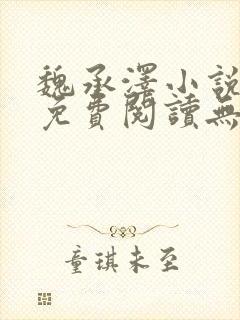 魏承澤小說
免費閱讀無
童琪未至